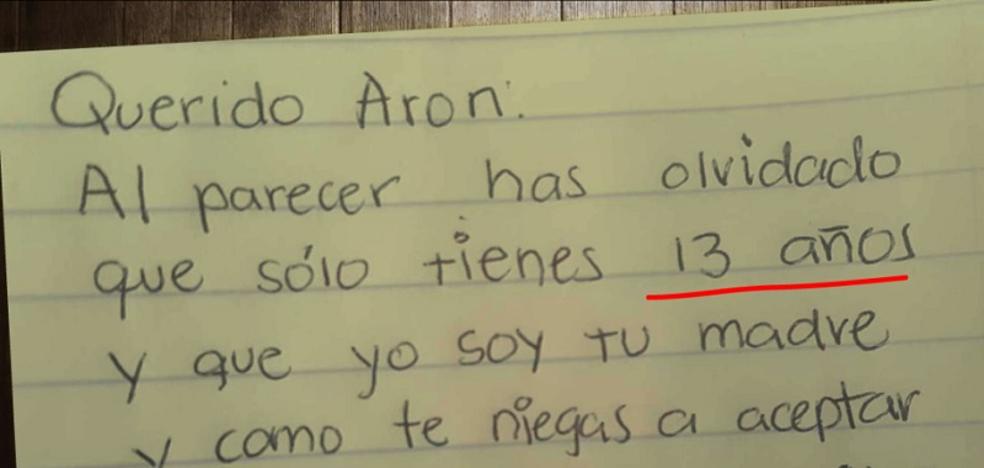 Querido Aron:
Al parecer has olvidado
que sólo tienes 13 años
y que yo soy tu madre
y como te niegas a aceptar